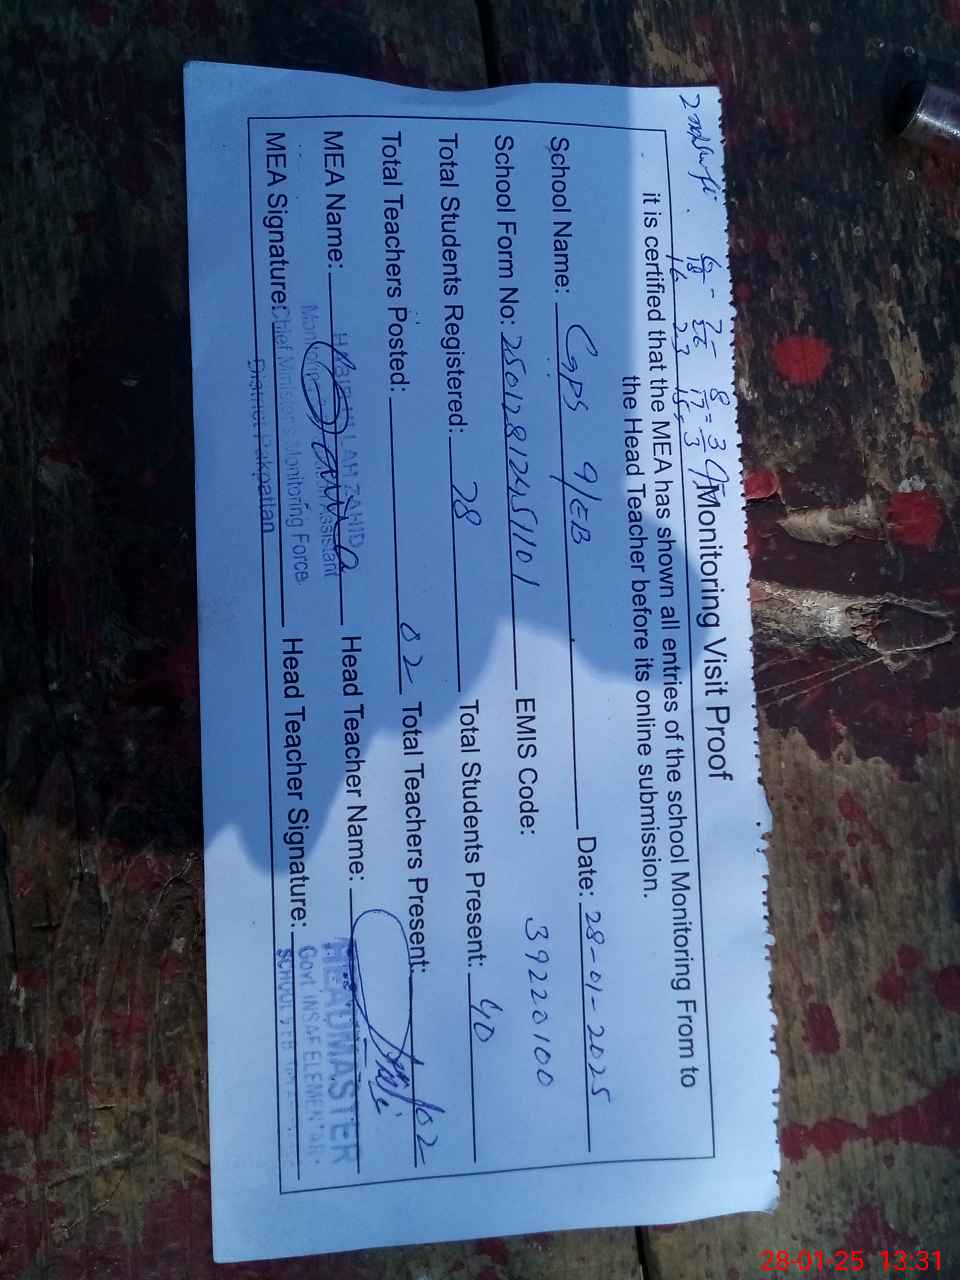 Monitoring Visit Proof
it is certified that the MEA has shown all entries of the school Monitoring From to
the Head Teacher before its online submission.
School Name: GPS 9/EB Date: 28-01-2025
School Form No: EMIS Code: 39220100
Total Students Registered: 78 Total Students Present: 40
Total Teachers Posted: 02 Total Teachers Present: 02
MEA Name: Head Teacher Name:
MEA Signature: Head Teacher Signature:
ZAHID
Monitoring Assistant
Chief Ministers Monitoring Force
District Pakpattan
HEADMASTER
Govt. INSAF ELEMENTARY
SCHOOL 9 EB
28-01-25 13:31